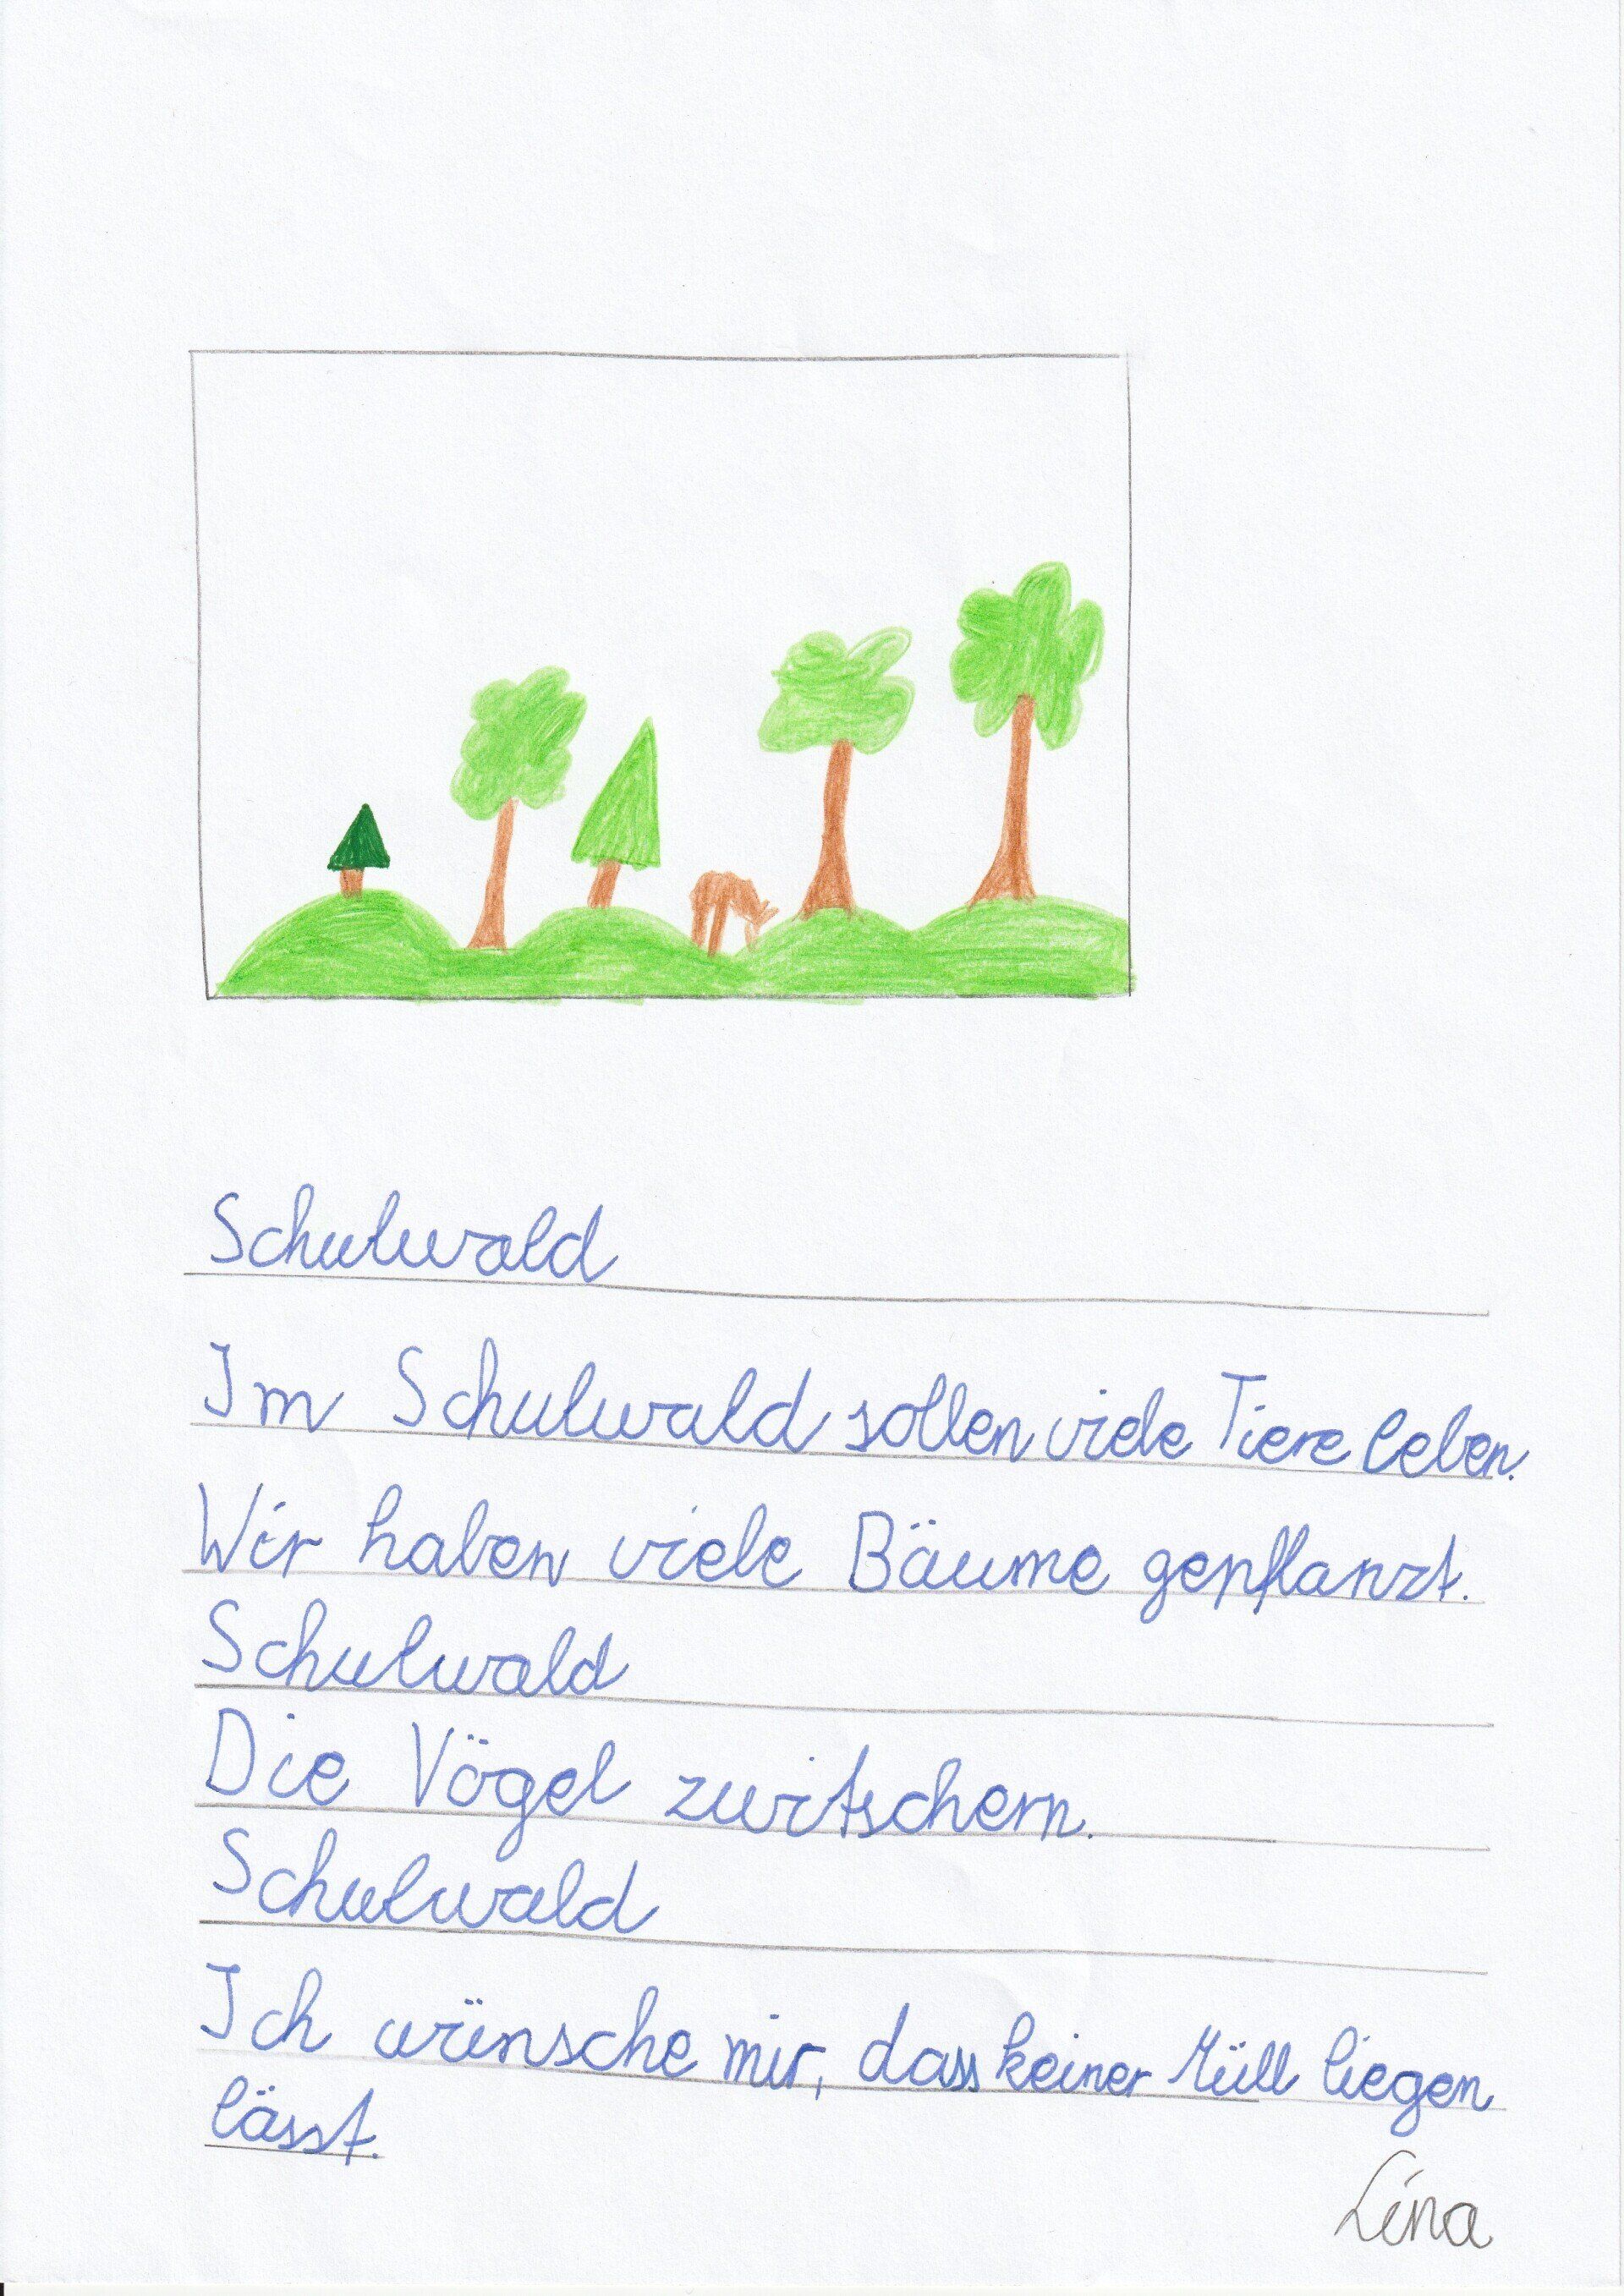 Schulwald
Im Schulwald sollen viele Tiere leben.
Wir haben viele Bäume gepflanzt.
Schulwald
Die Vögel zwitschern.
Schulwald
Ich wünsche mir, dass keiner Müll liegen
lässt.
Lina